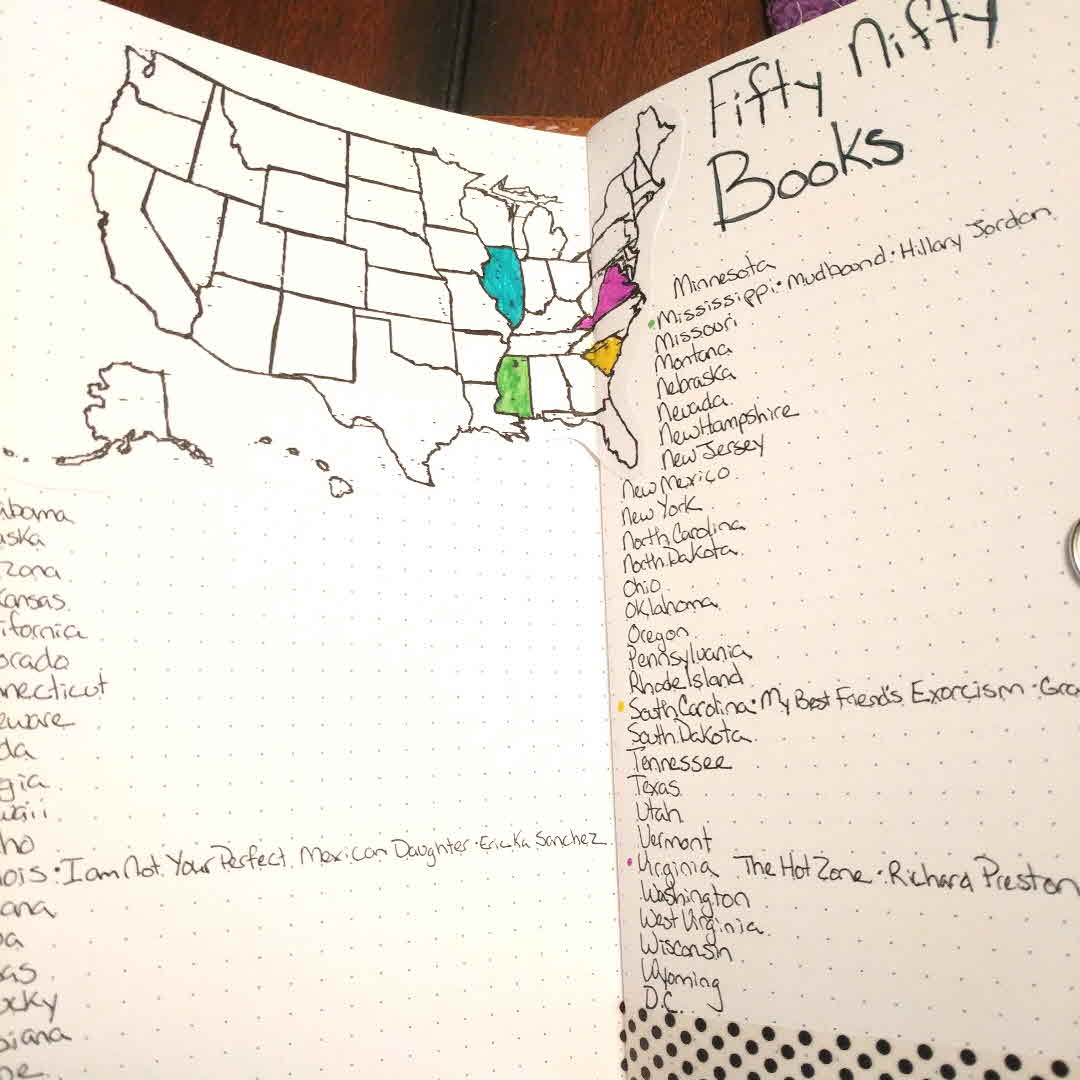 Fifty Nifty
Books
abama
aska
zona
Kansas
ifornia
orado
necticut
eware
da
gia
waii
ho
ois · I am Not Your Perfect Mexican Daughter · Ericka Sanchez
ana
a
as
ucky
siana
ne
Minnesota
Mississippi · Mudbound · Hillary Jordan
Missouri
Montana
Nebraska
Nevada
New Hampshire
New Jersey
New Mexico
New York
North Carolina
North Dakota
Ohio
Oklahoma
Oregon
Pennsylvania
Rhode Island
South Carolina · My Best Friend's Exorcism · Gra
South Dakota
Tennessee
Texas
Utah
Vermont
Virginia The Hot Zone · Richard Preston
Washington
West Virginia
Wisconsin
Wyoming
D.C.